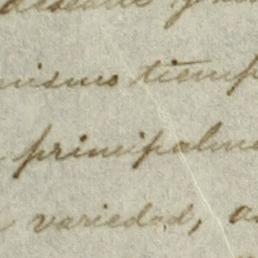 mismo tiemp
principalme
variedad, a